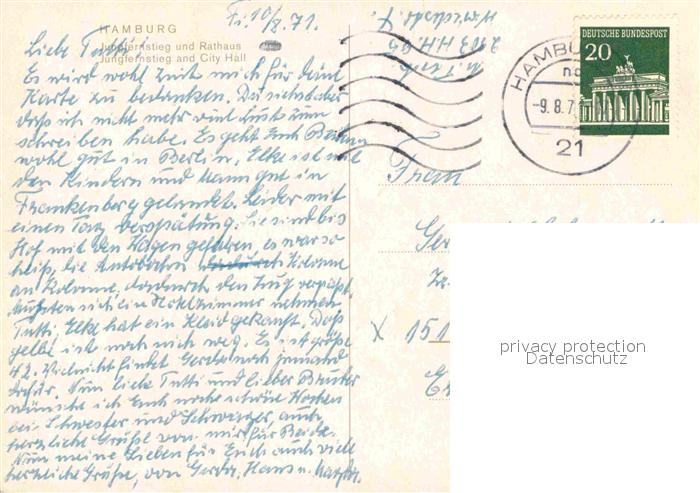 HAMBURG
Jungfernstieg und Rathaus
Jungfernstieg and City Hall
Fr. 10/8.71.
Liebe Tutti!
Es wird wohl Zeit mich für deine
Karte zu bedanken. Du siehst aber
daß ich nicht mehr viel Lust zum
schreiben habe. Es geht Euch Beiden
wohl gut in Berlin. Elke ist mit
den Kindern und Mann gut in
Frankenberg gelandet. Leider mit
einen Tag Verspätung. Sie sind bis
Hof mit den Wagen gefahren, es war so
heiß, die Autobahn Kolonne
an Kolonne, dadurch den Zug verpaßt.
Mußten sich ein Hotelzimmer nehmen.
Tutti, Elke hat ein Kleid gekauft. Das
gelbe ist noch nicht weg. Es ist größe
42. Vielleicht findet Gerda noch jemand
dafür. Nun liebe Tutti und lieber
wünsche ich Euch noch schöne Wochen
bei Schwester und Schwager, auch
herzliche Grüße von mir für Beide.
Nun meine Lieben für Euch auch viel
herzliche Grüße, von Gerda, Hans u.
2103 H.H. 95
DEUTSCHE BUNDESPOST
20
HAMBU
-9.8.7
21
Frau
Ger
X 151
privacy protection
Datenschutz